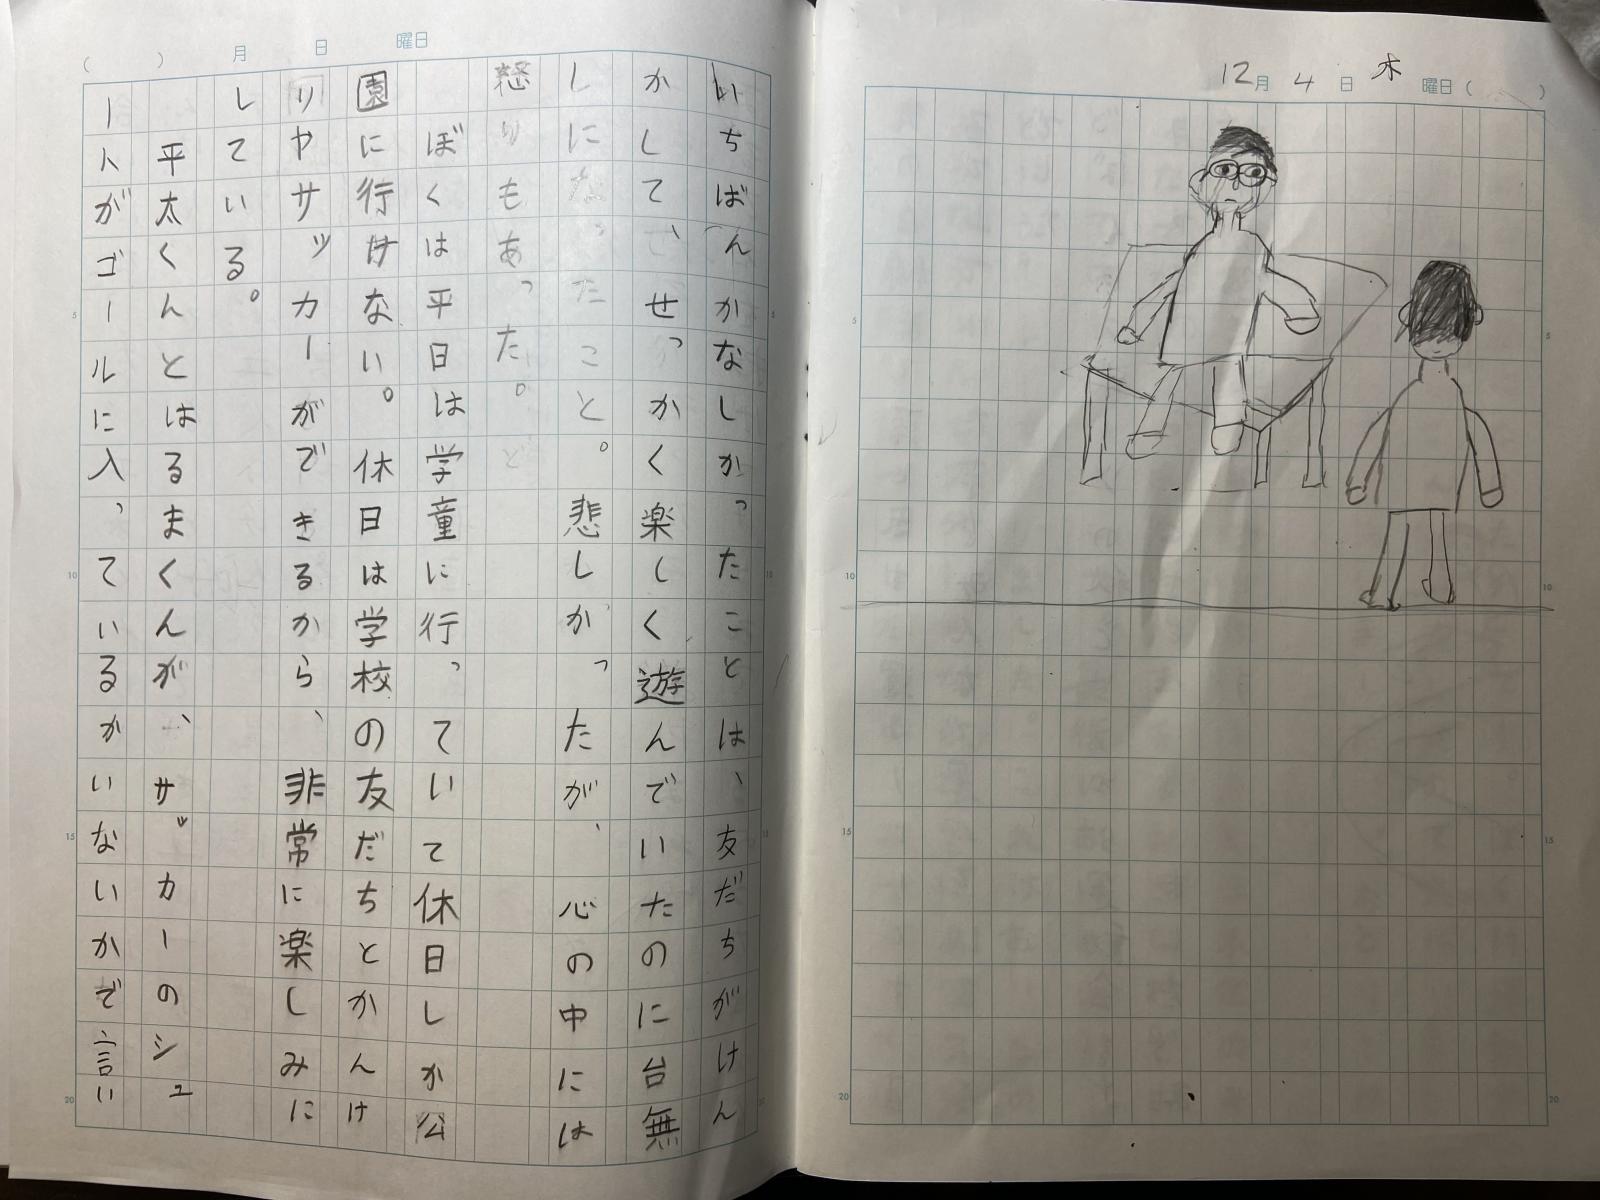 12月4日木曜日( )
( )月 日 曜日
いちばんかなしかったことは、友だちがけん
かして、せっかく楽しく遊んでいたのに台無
しになったこと。悲しかったが、心の中には
怒りもあった。
ぼくは平日は学童に行っていて休日しか公
園に行けない。休日は学校の友だちとかんけ
りやサッカーができるから、非常に楽しみに
している。
平太くんとはるまくんが、サッカーのシュ
ートがゴールに入っているかいないかで言い
5
10
15
20
5
10
15
20